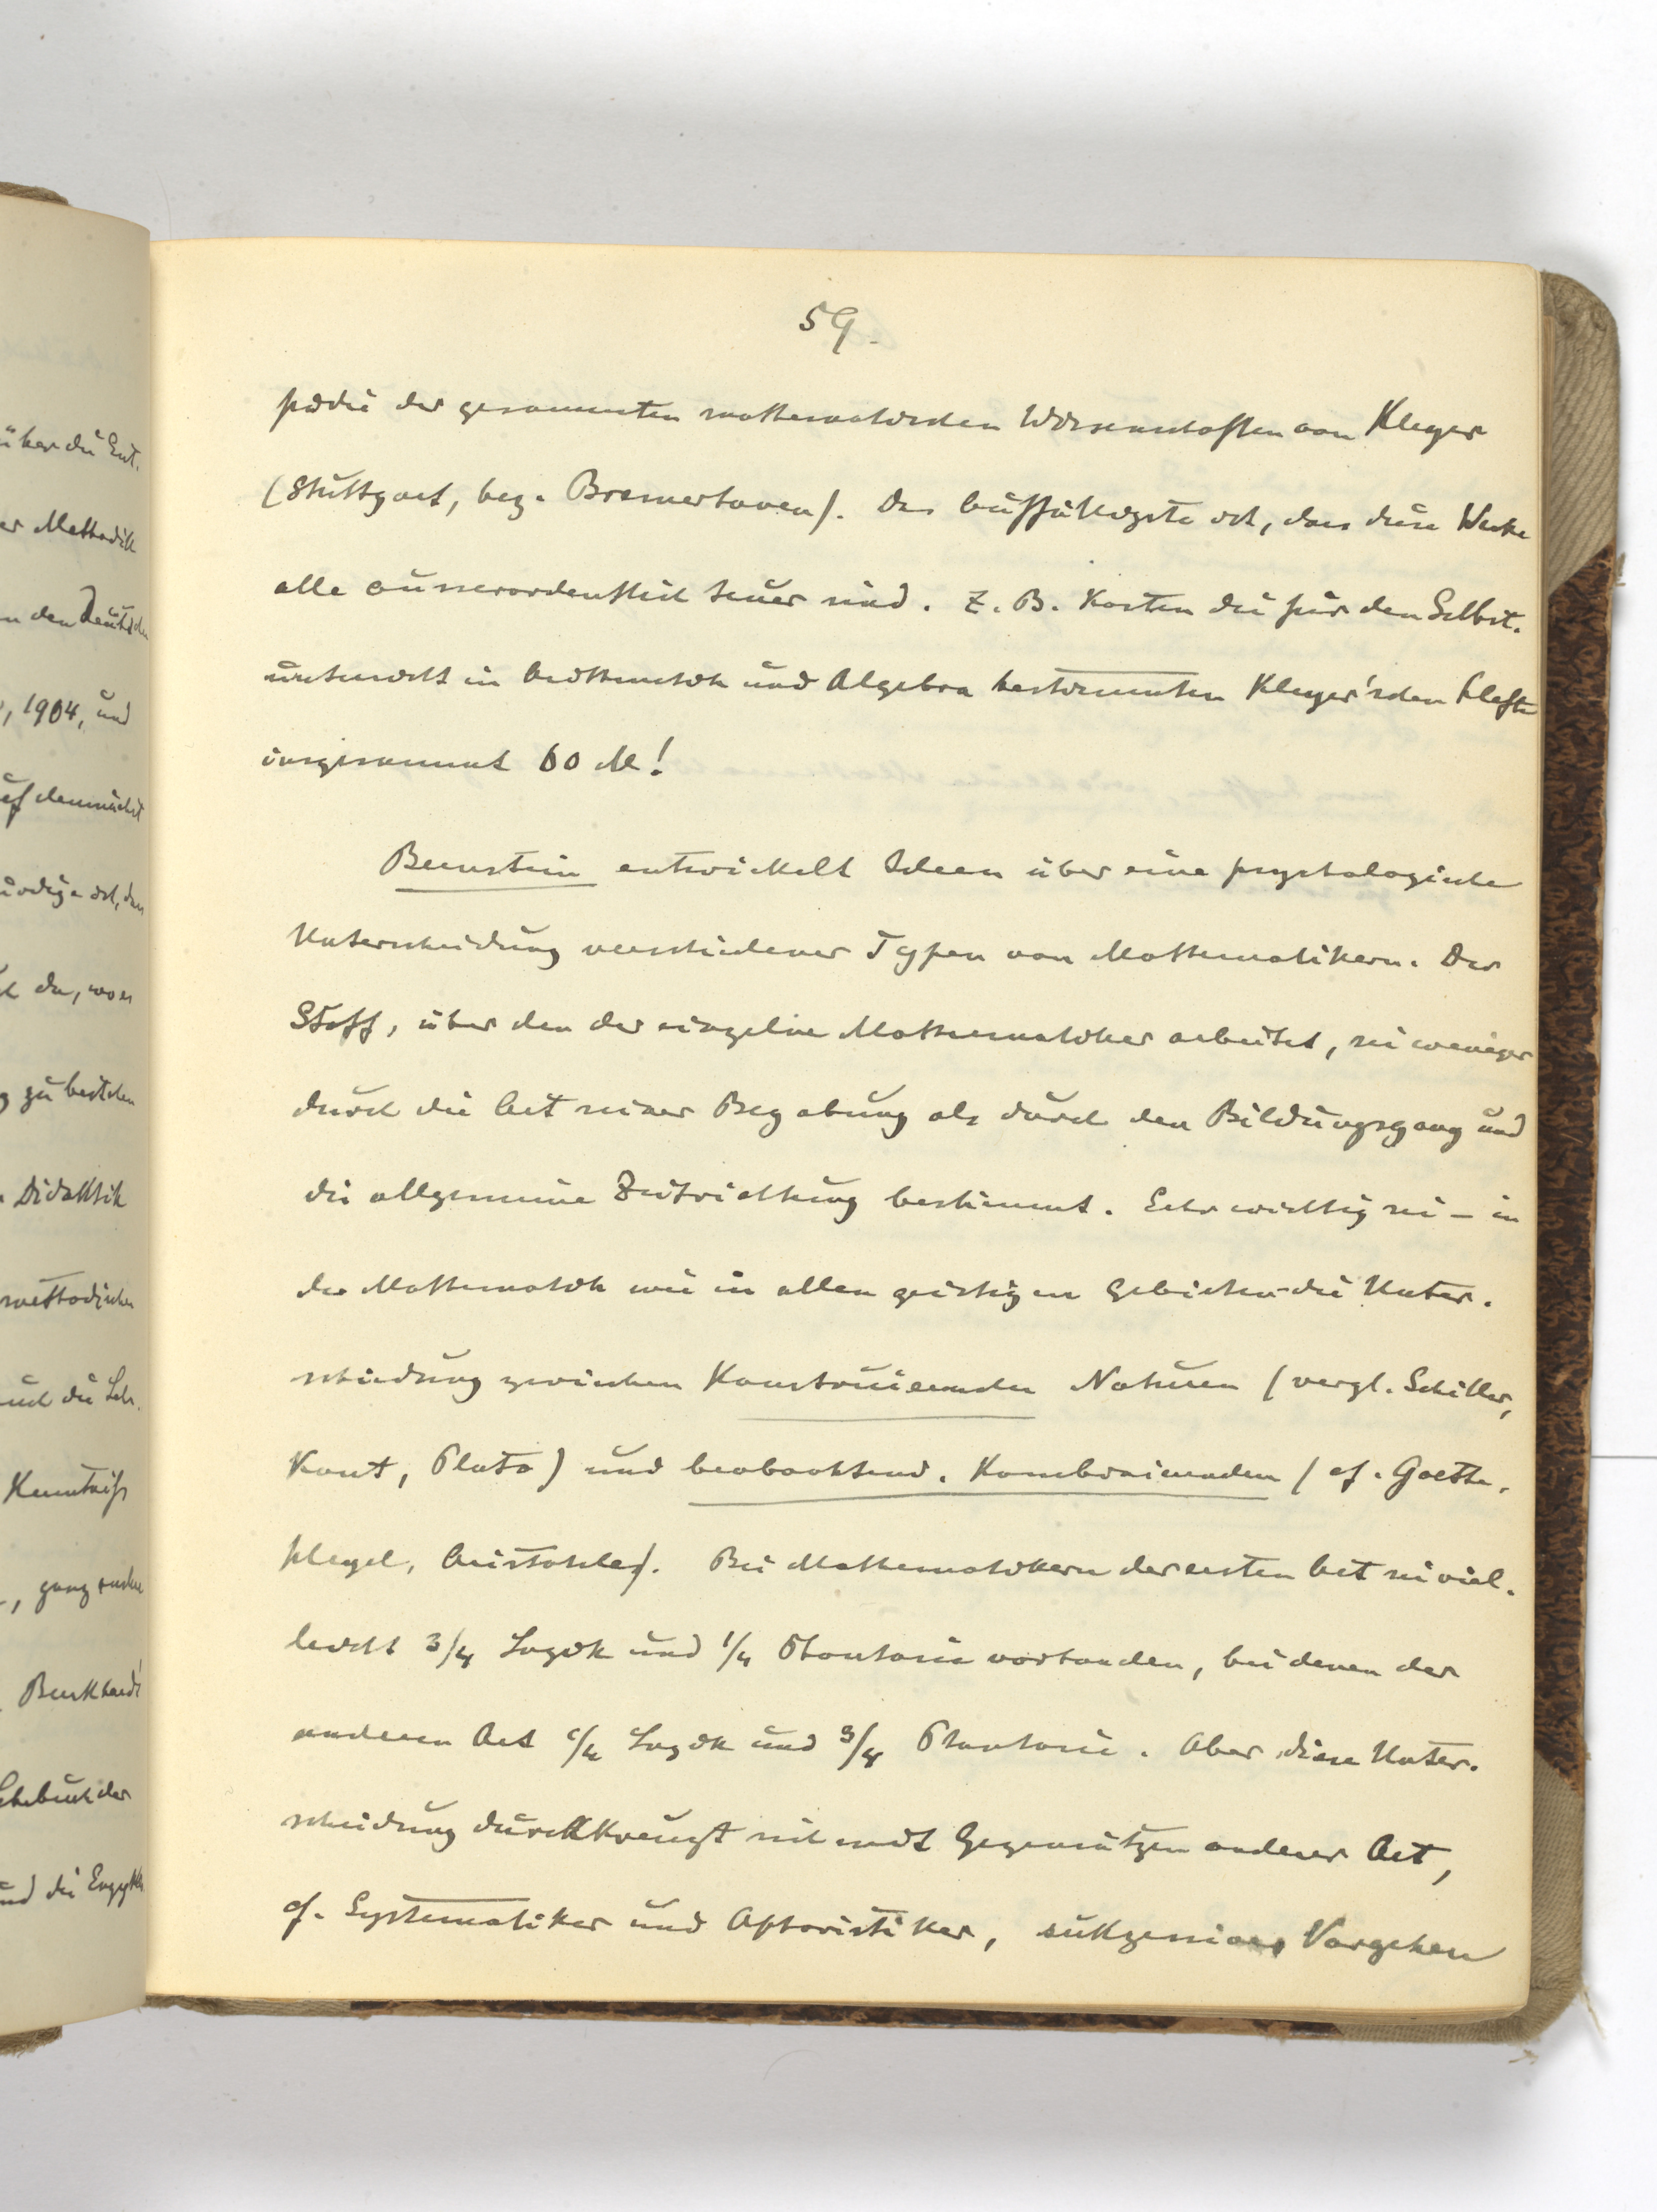 über die Ent-
er Methodik
n den Deutschen
, 1904, und
auf demnächst
würdige ist, dass
da, wo er
g zu bestehen
. Didaktik
methodischen
und die Leh-
Kenntniss
, ganz
Burkhardt
Lehrbuch der
und die Enzykl
59.
pädie der gesammten mathematischen Wissenschaften von Kleyer
(Stuttgart, bez. Bremerhaven). Das Auffälligste ist, dass diese Werke
alle ausserordentlich teuer sind. Z. B. kosten die für den Selbst-
unterricht in Arithmetik und Algebra bestimmten Kleyer'schen Hefte
insgesammt 60 M!
Bernstein entwickelt Ideen über eine psychologische
Unterscheidung verschiedener Typen von Mathematikern. Der
Stoff, über den der einzelne Mathematiker arbeitet, sei weniger
durch die Art seiner Begabung als durch den Bildungsgang und
die allgemeine Zeitrichtung bestimmt. Sehr wichtig sei – in
der Mathematik wie in allen geistigen Gebieten – die Unter-
scheidung zwischen Konstruierenden Naturen (vergl. Schiller,
Kant, Plato) und beobachtend-Kombinierenden (cf. Goethe,
Hegel, Aristoteles). Bei Mathematikern der ersten Art sei viel-
leicht 3/4 Logik und 1/4 Phantasie vorhanden, bei denen der
anderen Art 1/4 Logik und 3/4 Phantasie. Aber diese Unter-
scheidung durchkreuzt sich mit Gegensätzen anderer Art,
cf. Systematiker und Aphoristiker, sukzessives Vorgehen